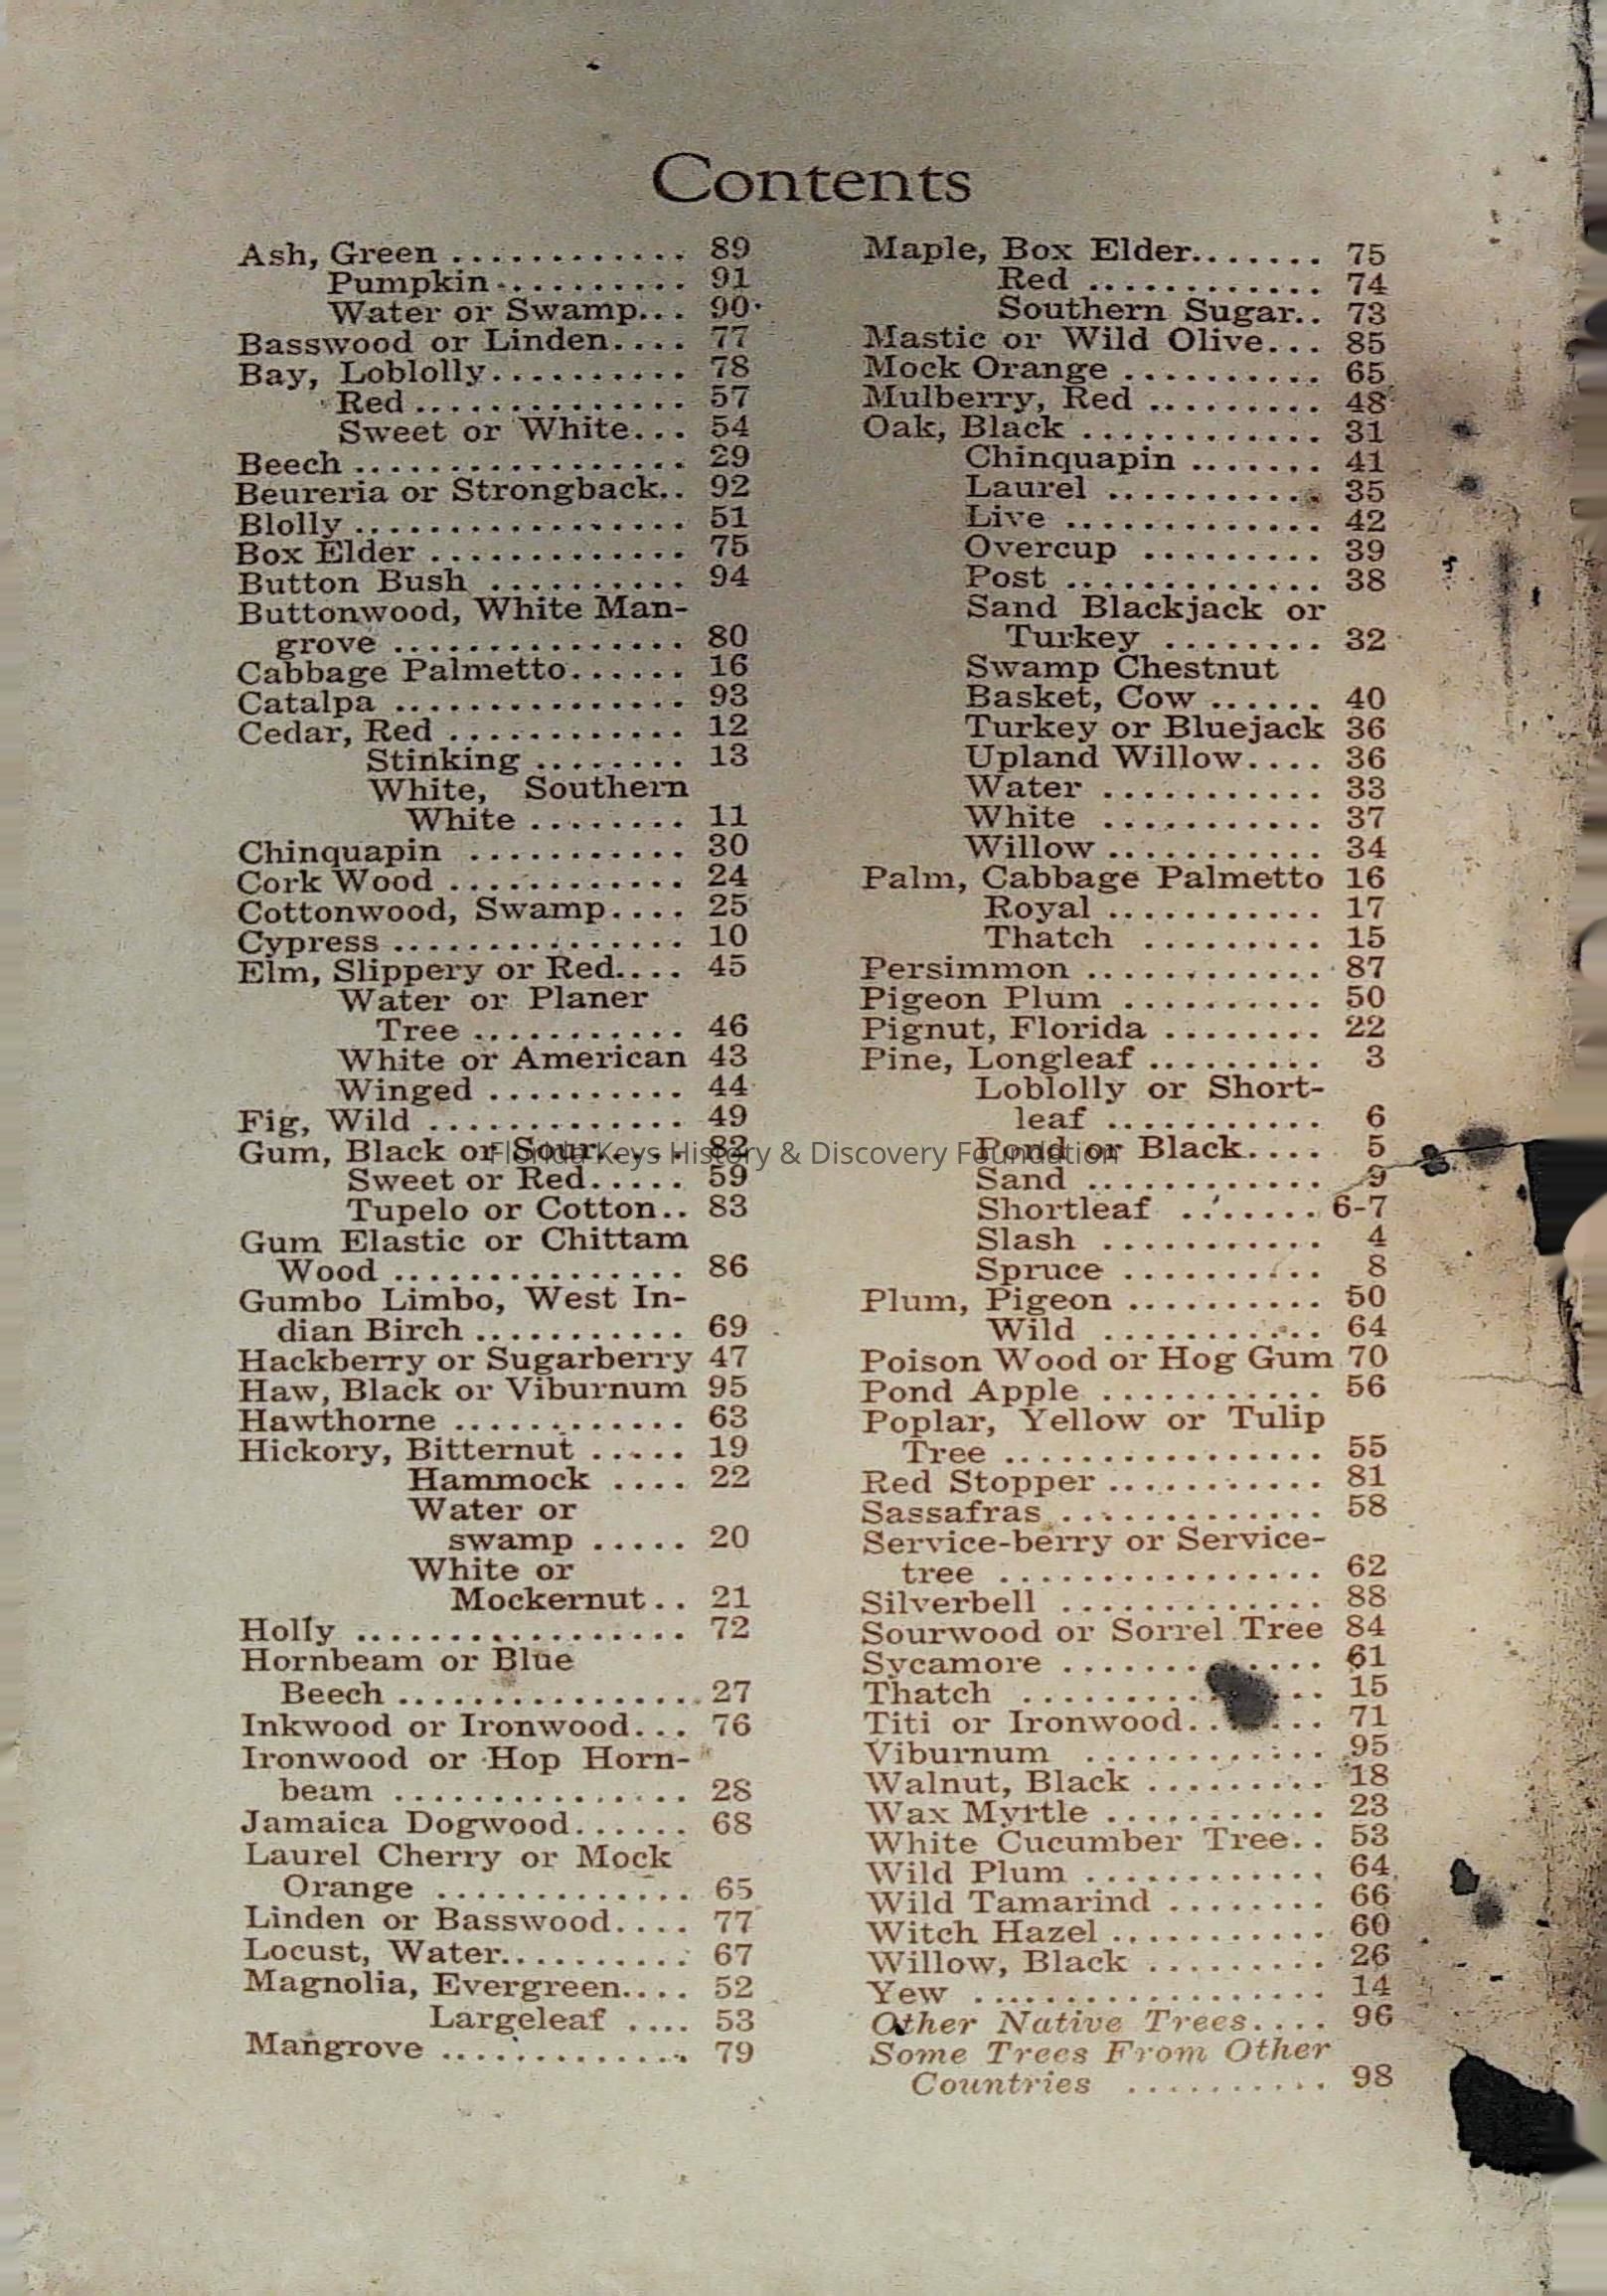 Contents
Ash, Green ............ 89
Pumpkin.......... 91
Water or Swamp... 90
Basswood or Linden.... 77
Bay, Loblolly.......... 78
Red.............. 57
Sweet or White... 54
Beech ................. 29
Beureria or Strongback.. 92
Blolly ................. 51
Box Elder ............. 75
Button Bush .......... 94
Buttonwood, White Man-
grove ............... 80
Cabbage Palmetto...... 16
Catalpa ............... 93
Cedar, Red ............ 12
Stinking ........ 13
White, Southern
White ........ 11
Chinquapin ........... 30
Cork Wood ............ 24
Cottonwood, Swamp.... 25
Cypress ............... 10
Elm, Slippery or Red.... 45
Water or Planer
Tree ........... 46
White or American 43
Winged .......... 44
Fig, Wild ............. 49
Gum, Black or Sour.... 82
Sweet or Red..... 59
Tupelo or Cotton.. 83
Gum Elastic or Chittam
Wood ............... 86
Gumbo Limbo, West In-
dian Birch ........... 69
Hackberry or Sugarberry 47
Haw, Black or Viburnum 95
Hawthorne ............ 63
Hickory, Bitternut ..... 19
Hammock .... 22
Water or
swamp ..... 20
White or
Mockernut.. 21
Holly ................. 72
Hornbeam or Blue
Beech ................ 27
Inkwood or Ironwood... 76
Ironwood or Hop Horn-
beam ............... 28
Jamaica Dogwood...... 68
Laurel Cherry or Mock
Orange ............. 65
Linden or Basswood.... 77
Locust, Water.......... 67
Magnolia, Evergreen.... 52
Largeleaf .... 53
Mangrove ............. 79
Maple, Box Elder....... 75
Red ............ 74
Southern Sugar.. 73
Mastic or Wild Olive... 85
Mock Orange .......... 65
Mulberry, Red ......... 48
Oak, Black ............ 31
Chinquapin ....... 41
Laurel ........... 35
Live ............. 42
Overcup ......... 39
Post ............. 38
Sand Blackjack or
Turkey ........ 32
Swamp Chestnut
Basket, Cow ...... 40
Turkey or Bluejack 36
Upland Willow.... 36
Water ........... 33
White ........... 37
Willow ........... 34
Palm, Cabbage Palmetto 16
Royal ........... 17
Thatch ......... 15
Persimmon ............ 87
Pigeon Plum .......... 50
Pignut, Florida ........ 22
Pine, Longleaf ......... 3
Loblolly or Short-
leaf ........... 6
Pond or Black.... 5
Sand ............ 9
Shortleaf ....... 6-7
Slash ........... 4
Spruce .......... 8
Plum, Pigeon .......... 50
Wild ........... 64
Poison Wood or Hog Gum 70
Pond Apple ........... 56
Poplar, Yellow or Tulip
Tree ................ 55
Red Stopper ........... 81
Sassafras ............. 58
Service-berry or Service-
tree ................ 62
Silverbell ............. 88
Sourwood or Sorrel Tree 84
Sycamore ............. 61
Thatch ............... 15
Titi or Ironwood....... 71
Viburnum ............ 95
Walnut, Black ......... 18
Wax Myrtle ........... 23
White Cucumber Tree.. 53
Wild Plum ............ 64
Wild Tamarind ........ 66
Witch Hazel ........... 60
Willow, Black ......... 26
Yew .................. 14
Other Native Trees.... 96
Some Trees From Other
Countries .......... 98
Florida Keys History & Discovery Foundation